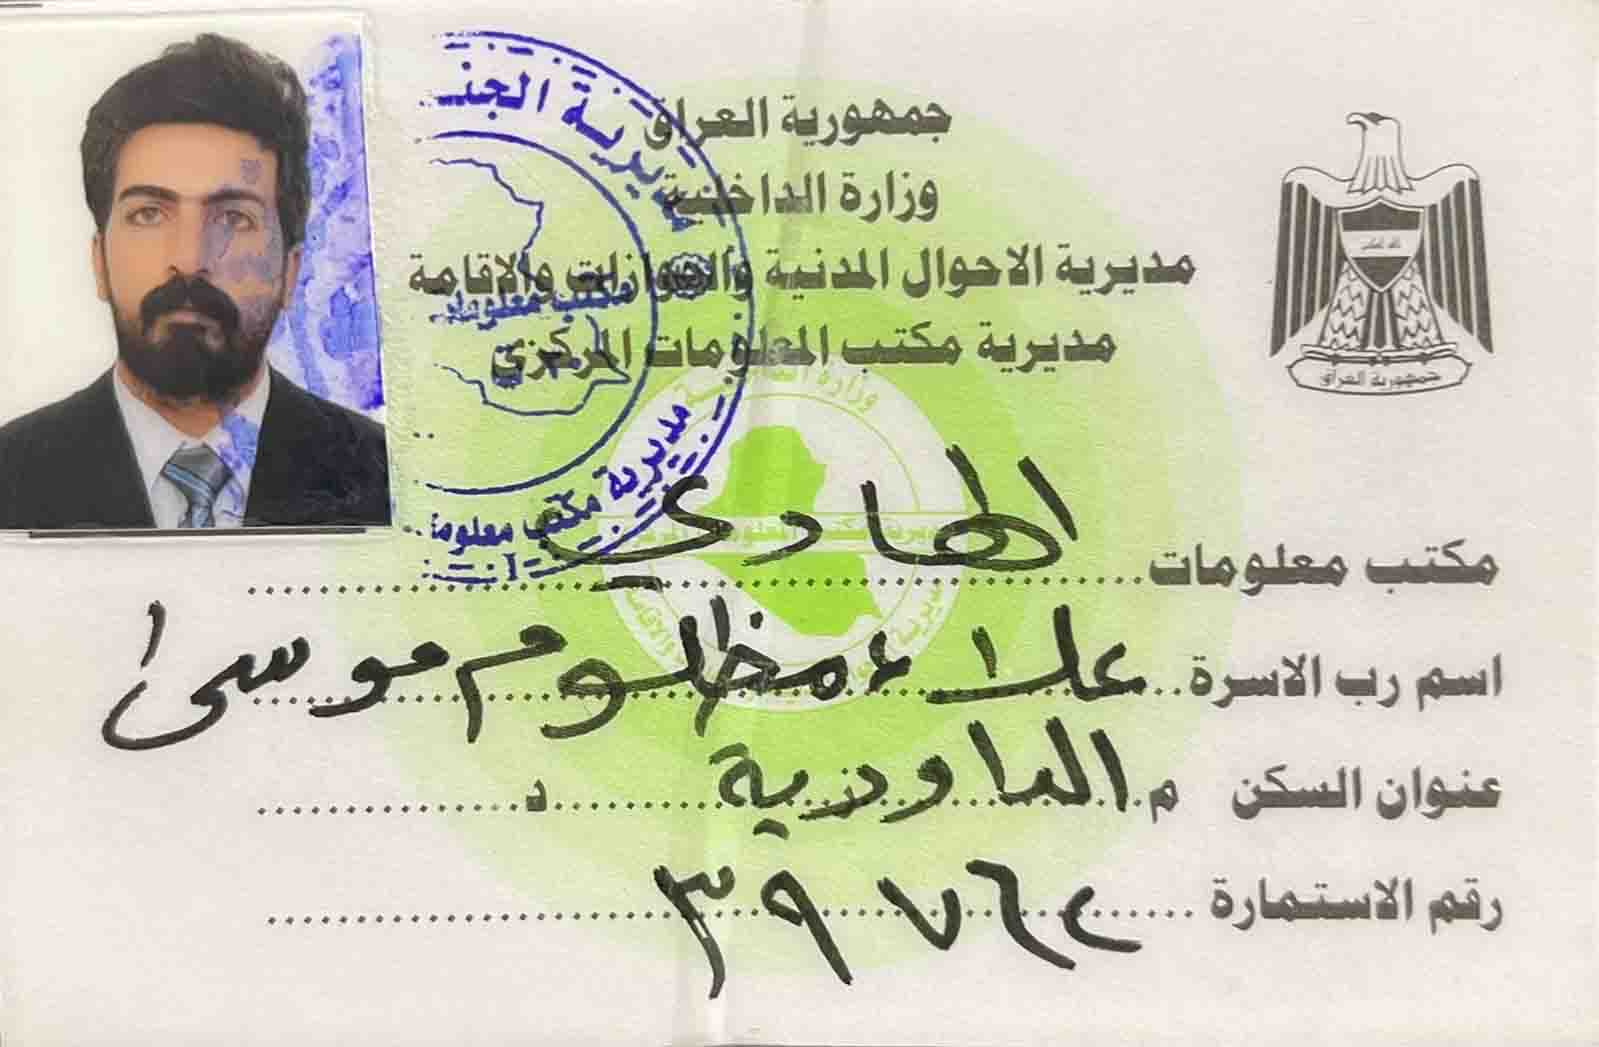 جمهورية العراق
وزارة الداخلية
مديرية الاحوال المدنية والجوازات والاقامة
مديرية مكتب المعلومات المركزي
جمهورية العراق
مديرية الجنـ
مكتب معلومات
مديرية مكتب معلومات
مكتب معلومات الهادي
اسم رب الاسرة علاء مظلوم موسى
عنوان السكن م د
رقم الاستمارة ٣٩٧٦٤